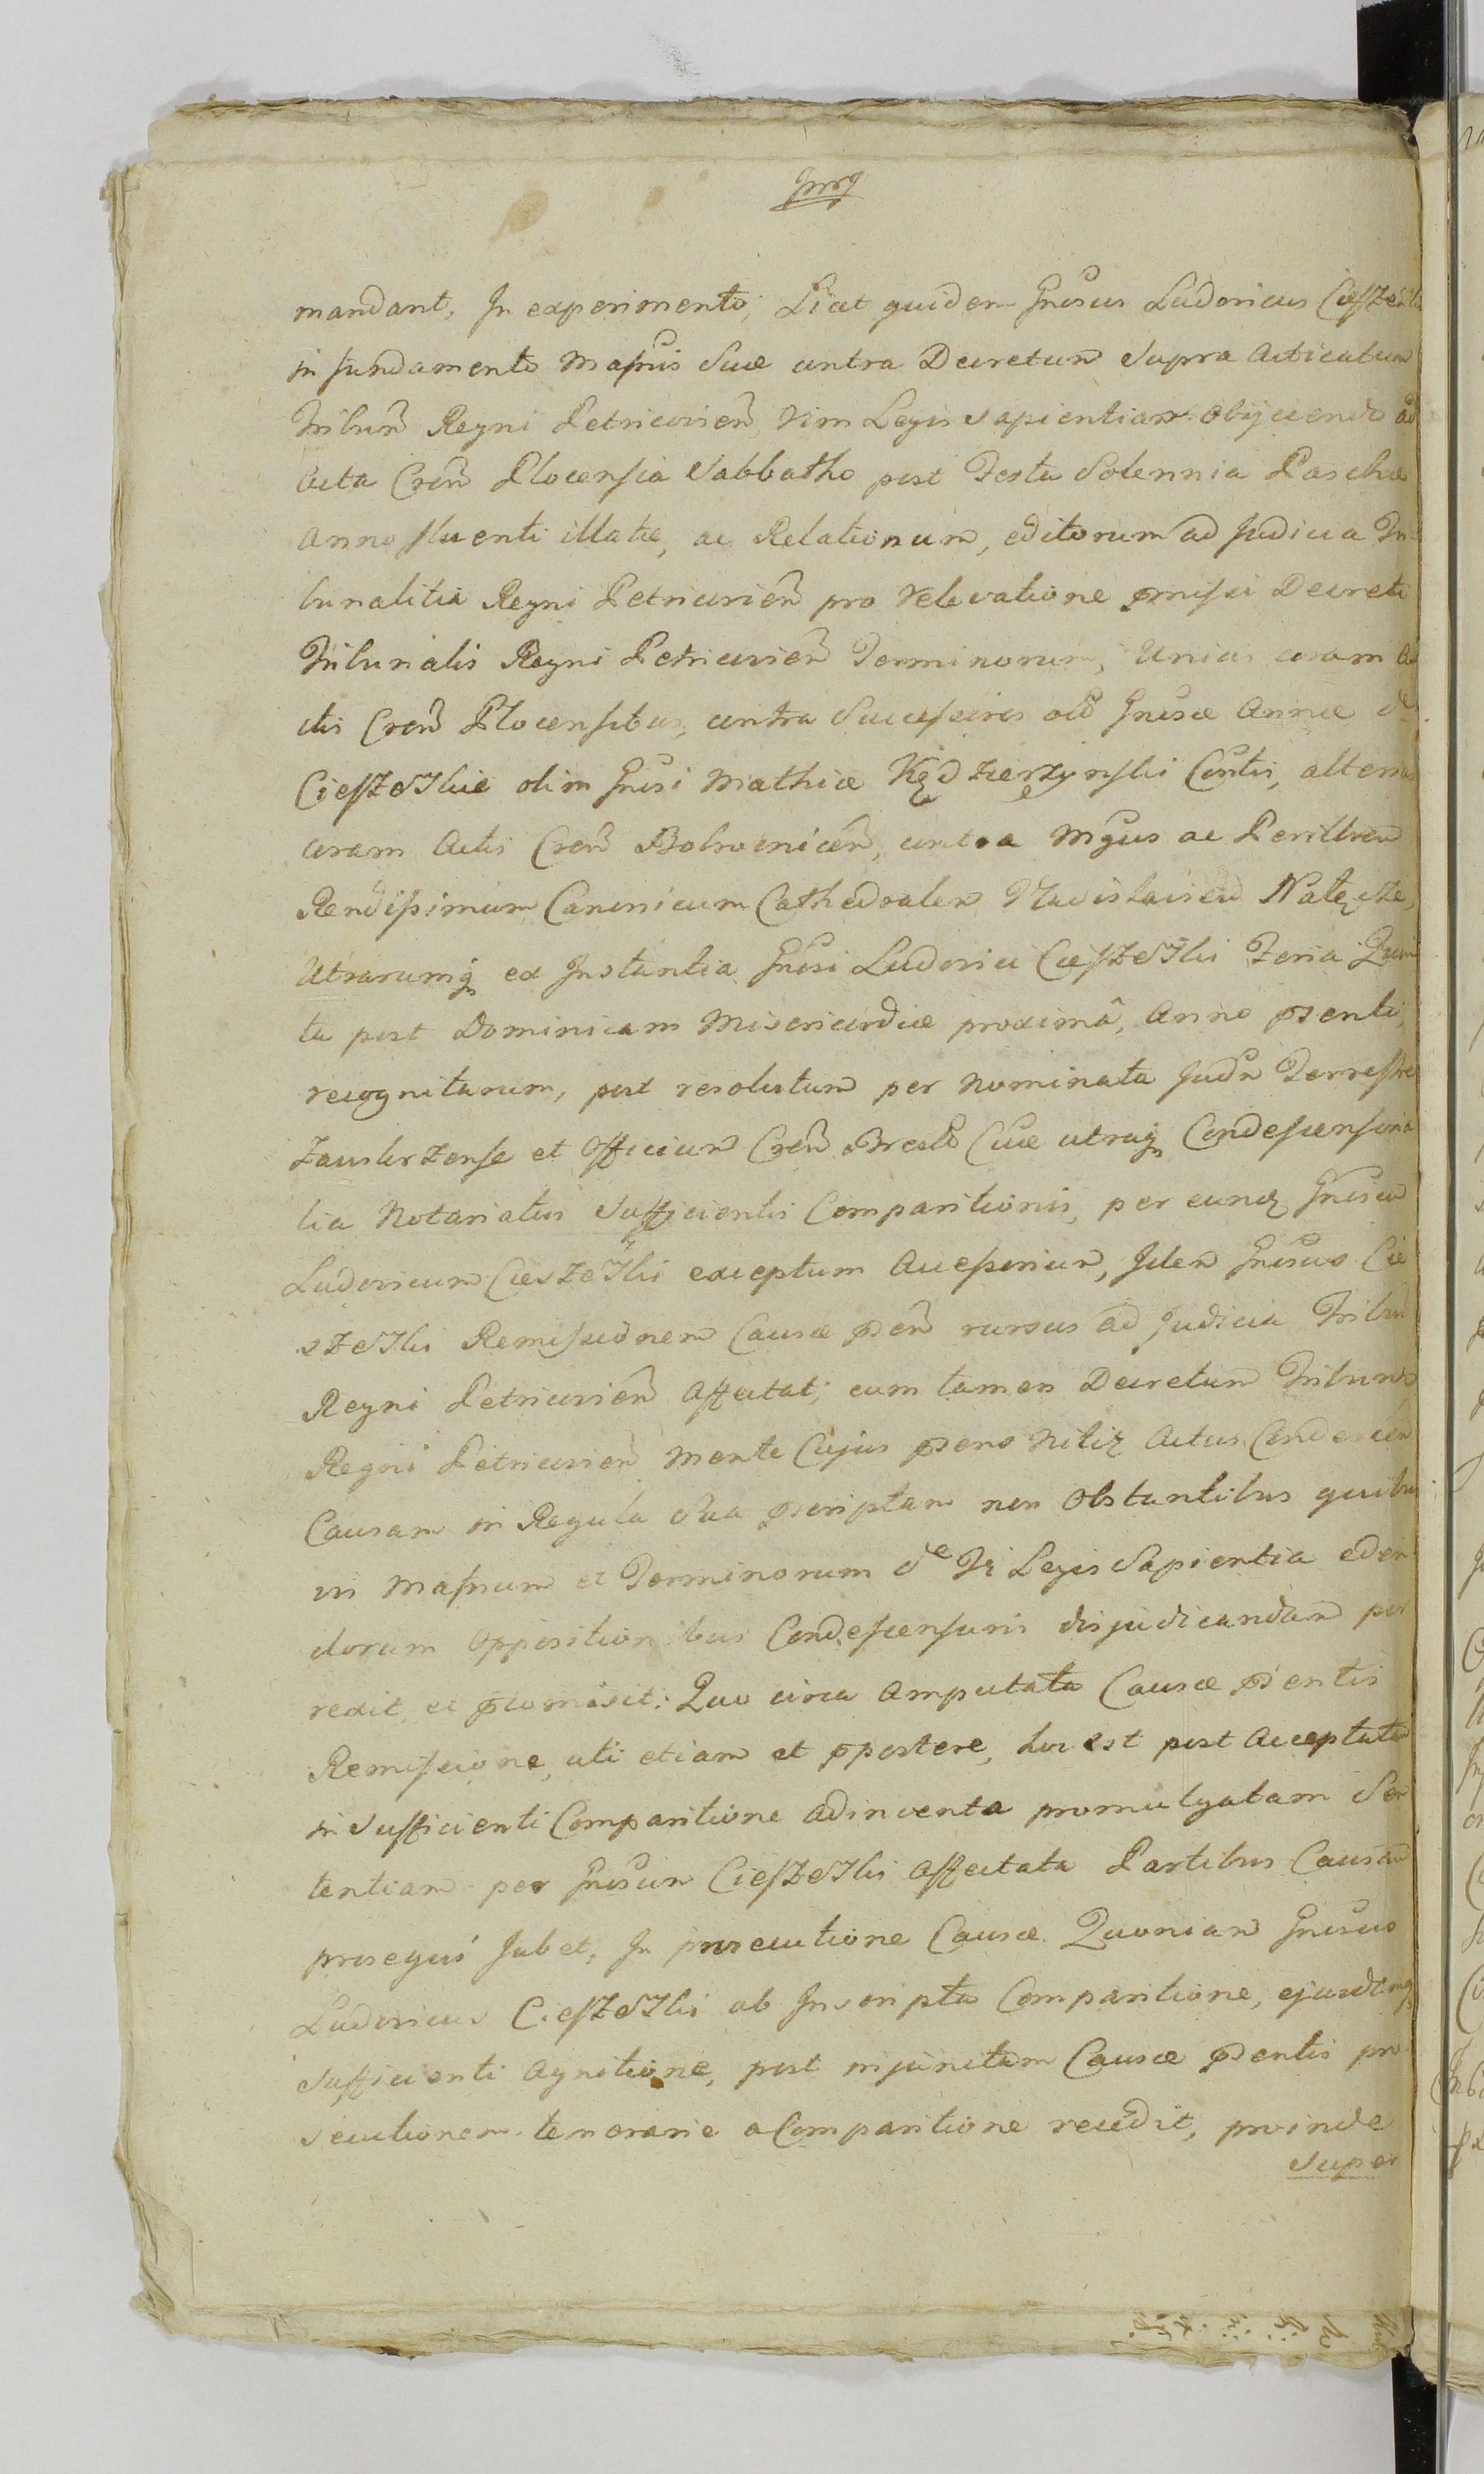 mandant, In experimento, Licet quidem Gnosus Ludovicus Ciesze
in fundamento Mafnis Suæ contra Decretum Supra Acticatum
Tribun̄ Regni Petricovien̄, Vim Legis Sapientiam Obijciendo ad
Acta Cren̄ Plocensia Sabbatho post Festa Solennia Paschæ
Anno fluenti illatæ, ac Relationum, editorum ad Judicia Tri
bunalitia Regni Petricovien̄ pro relevatione pmissi Decreti
Tribunalis Regni Petricovien̄ Terminorum, Unius coram Ac
tis Cren̄ Plocensibus, contra Successores old Gnosæ Annæ de
CieszeJkie olim Gnosi Mathiæ Kędzierzynski Contis, alterius
coram Actis Cren̄ Bobrovnicen̄, contra Mgcus ac Perillrem
Rendissimum Canonicum Cathedralem Vladislavien̄
Utrarumq ex Instantia Gnosi Ludovici CieszeJki Feria Quin
ta post Dominicam Misericordiæ proximâ, Anno psenti,
recognitarum, post resolutum per nominata Judia Terrestre
et Officium Cren̄ utraq Condescensoria
lia Notariatus Sufficientis Comparitionis, per eundz Gnosum
Ludovicum CieszeJki exceptum Accessorium, Idem Gnosus Cie
szeJki Remissionem Causæ psen̄ rursus ad Judicia Tribun̄
Regni Petricovien̄ Affectat; cum tamen Decretum Tribun̄
Regni Petricovien̄ Mente Cujus psens Actus Condescen̄
Causam in Regula Sua pscriptam non Obstantibus quibus
vis Mafnum et Terminorum de Vi Legis Sapientia eden
dorum Oppositionibus Condescensuris disjudicandam por
rexit, et promisit: Quo circa Amputata Causæ psentis
Remissione, uti etiam et ppostere, hoc est post Acceptatam
in Sufficienti Comparitione adinventa promulgatam Sen
tentiam per Gnosum CieszeJki Affectata Partibus Causam
prosequi Jubet, In prosecutione Causæ Quoniam Gnosus
Ludovicus CieszeJki ab Inscripta Comparitione, ejusdemq
Sufficienti Agnitione, post injunctam Causæ psentis pro
secutionem temerarie a Comparitione recedit, proinde
Super